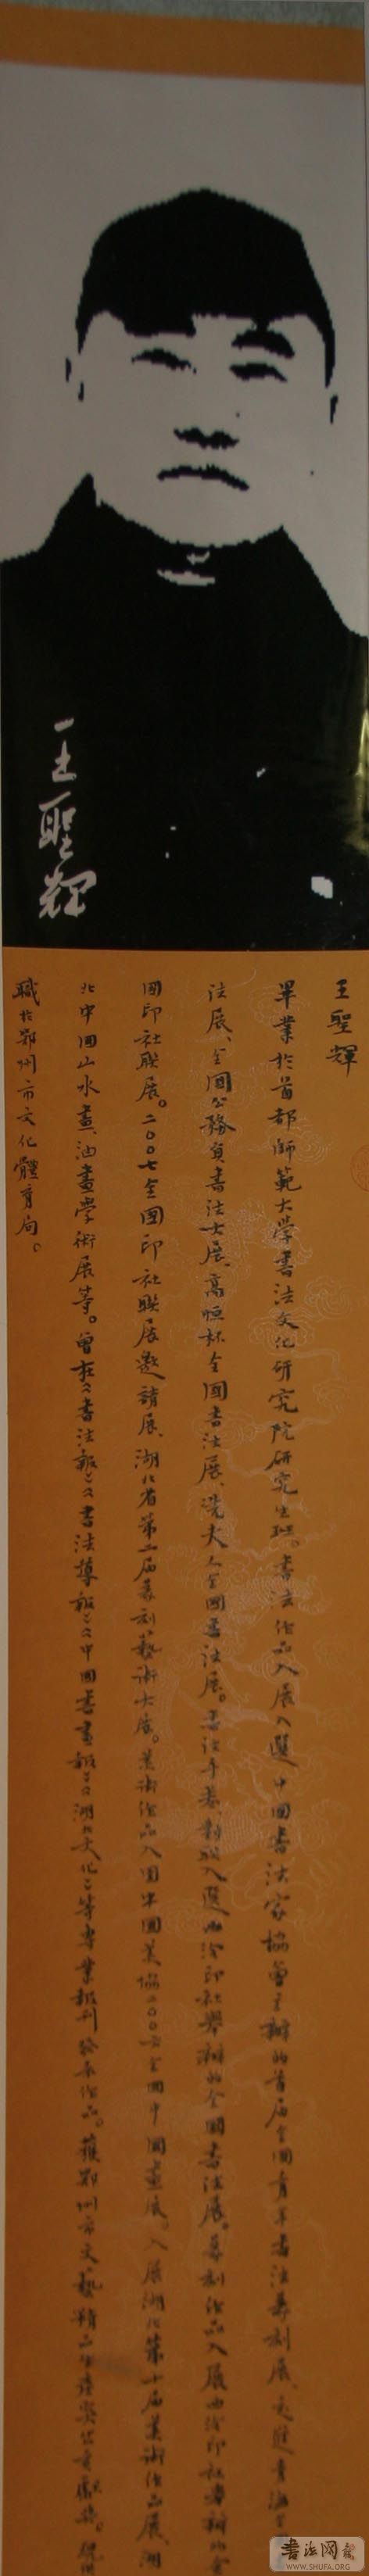 王聖輝
王聖輝
畢業於首都師範大學書法文化研究院研究生班。書法作品入展入選中國書法家協會主辦的首届全國青年書法篆刻展、
法展、全國公務員書法大展、高恒杯全國書法展、冼夫人全國書法展。書法手卷、對联入選西泠印社舉辦的全國書法展。篆刻作品入展西泠印社舉辦的全
國印社聯展。二〇〇七全國印社聯展邀請展、湖北省第二届篆刻藝術大展。美術作品入圍中國美協二〇〇六全國中國畫展。入展湖北第十届美術作品展、湖
北中國山水畫、油畫學術展等。曾在《書法報》《書法導報》《中國書畫報》《湖北文化》等專業報刊發表作品。獲鄂州市文藝精品生產突出貢獻獎。
職於鄂州市文化體育局。
書法网
WWW.SHUFA.ORG